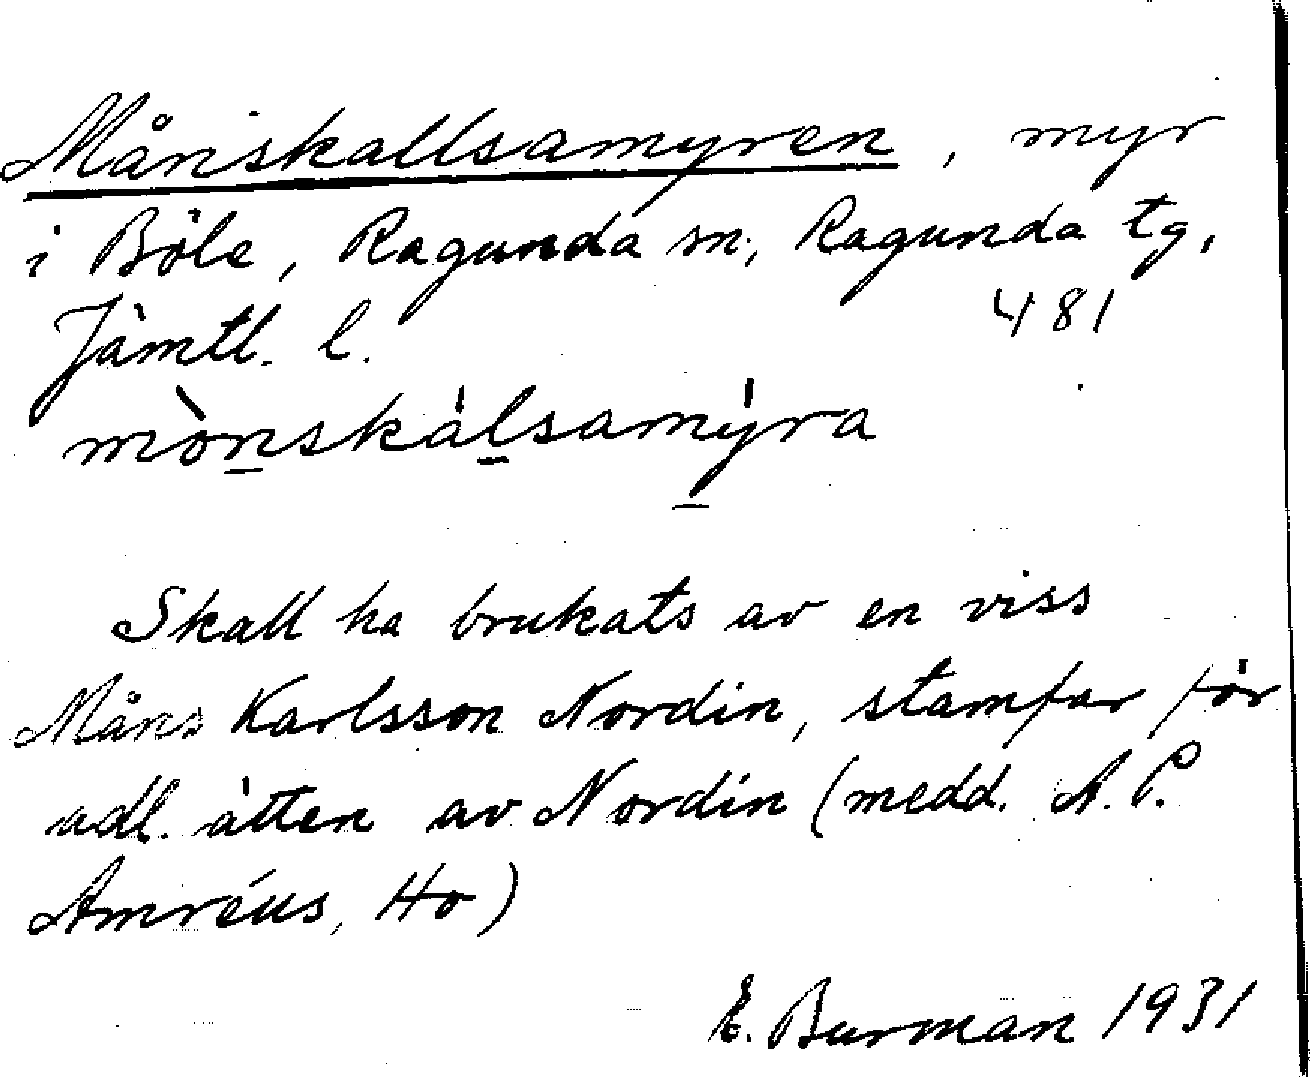 Månskallsamyren, myr
i Böle, Ragunda sn, Ragunda tg,
Jämtl. l. 481
mònskálsamýra
Skall ha brukats av en viss
Måns Karlsson Nordin, stamfar för
adl. ätten av Nordin (medd. A. P.
Amréus, Ho)
E. Burman 1931